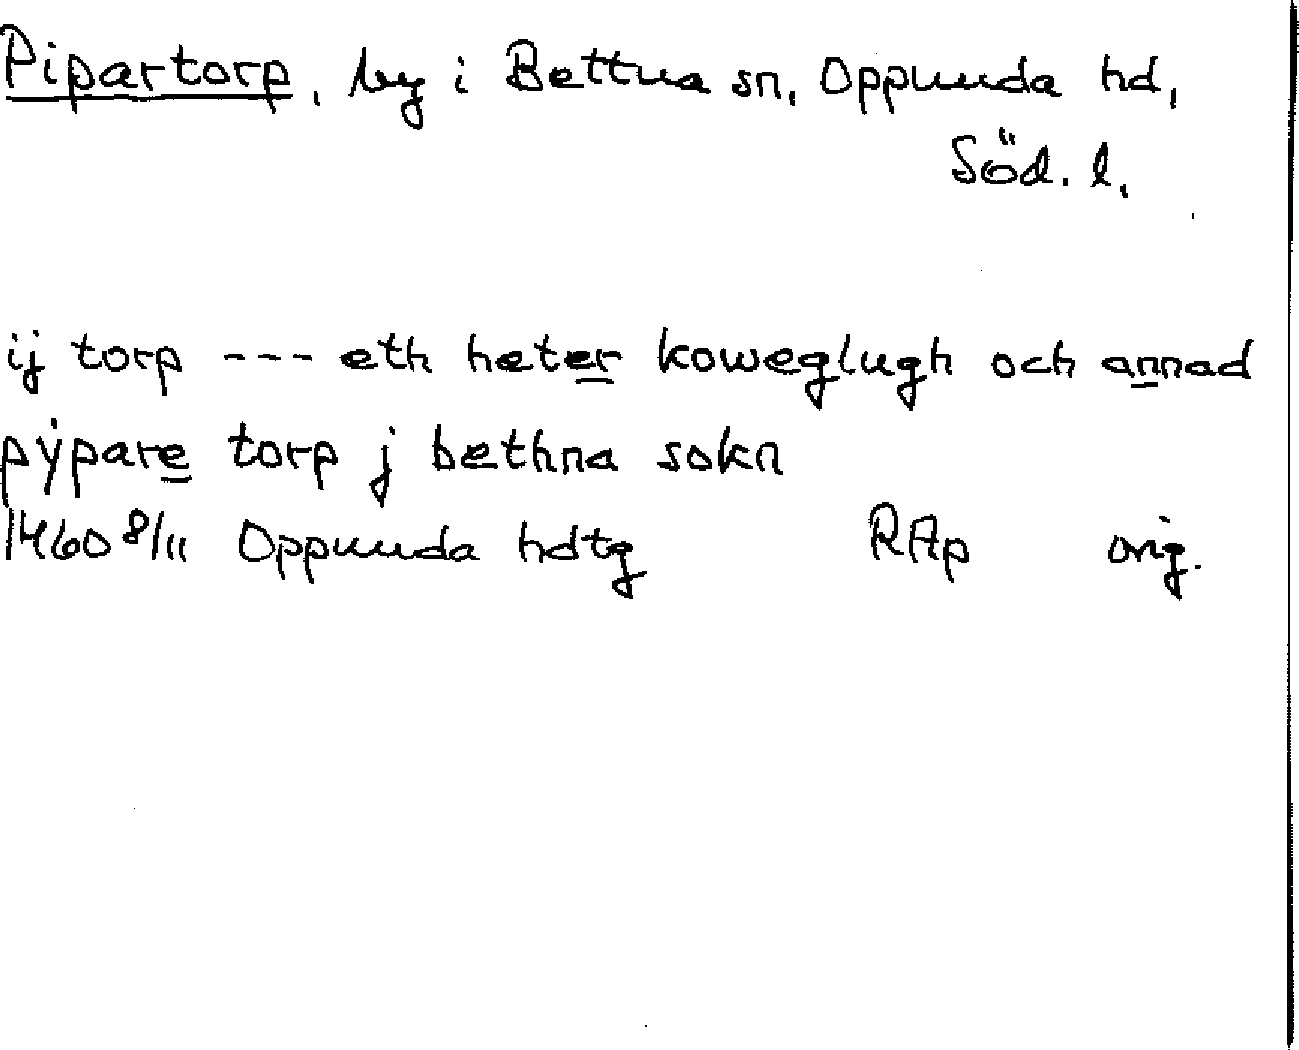 Pipartorp, by i Bettna sn, Oppunda hd,
Söd. l.
ij torp --- eth heter koweglugh och annad
pẏpare torp j bethna sokn
1460 8/11 Oppunda hdtg RAp orig.